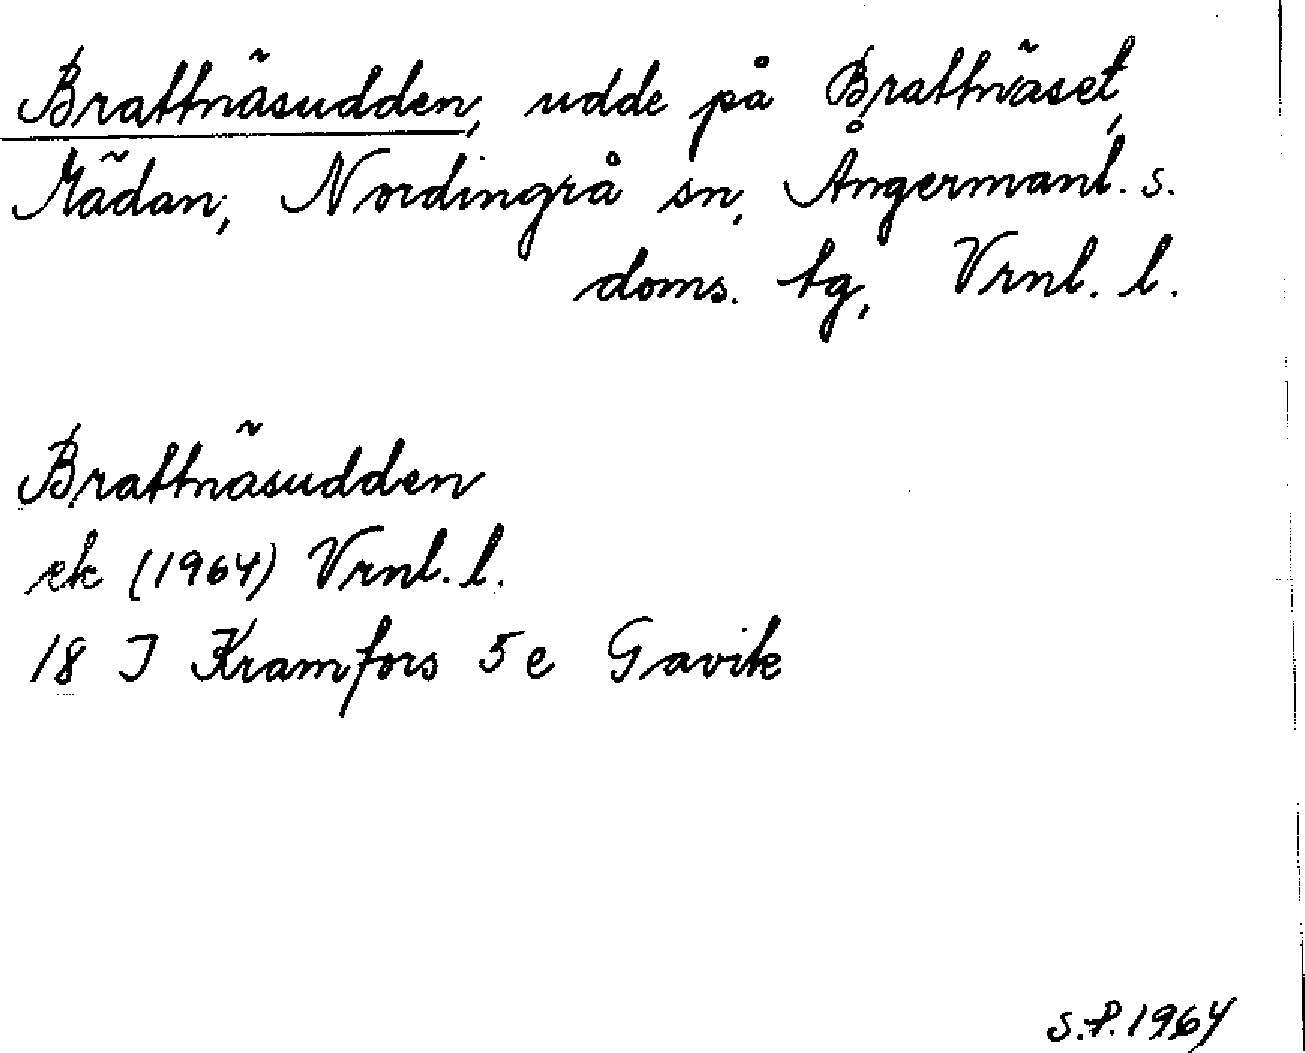 Brattnäsudden, udde på Brattnäset,
Mädan, Nordingrå sn, Ångermanl. s.
doms. tg, Vrnl. l.
Brattnäsudden
ek (1964) Vrnl. l.
18 I Kramfors 5 e Gavik
S.P. 1964